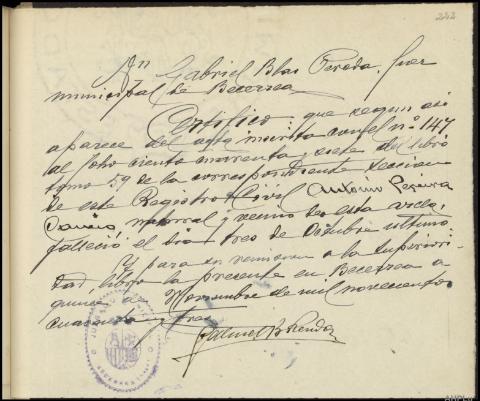 242
Dn Gabriel Blas Pereda, Juez
municipal de Becerrea
Certifico: que segun asi
aparece del acta inscrita con el nº 147
al folio ciento noventa y siete del libro
tomo 59 de la correspondiente seccion
de este Registro Civil Antonio Pereira
natural y vecino de esta villa,
falleció el dia tres de Octubre ultimo
Y para su remision a la Superiori-
dad, libro la presente en Becerrea a
quince de Noviembre de mil novecientos
cuarenta y tres